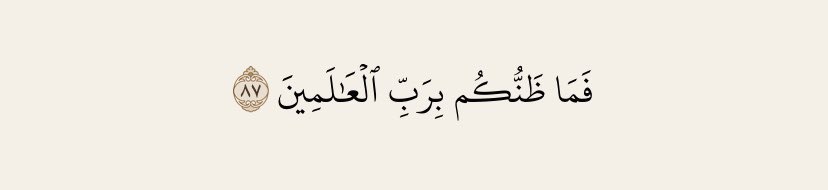 فَمَا ظَنُّكُم بِرَبِّ ٱلۡعَـٰلَمِينَ ٨٧